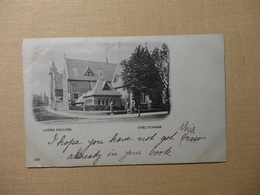 LADIES COLLEGE. CHELTENHAM.
this
I hope you have not got view
already in your book